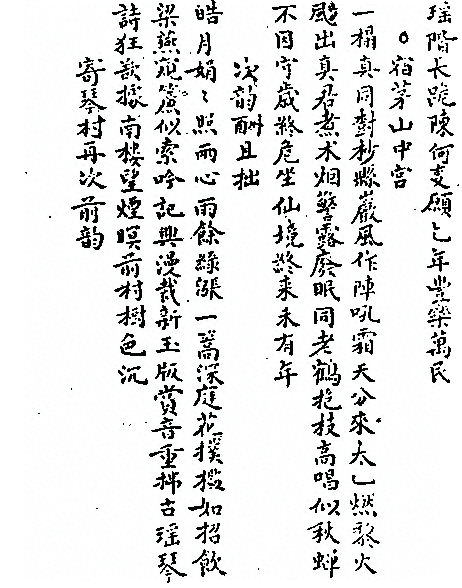 瑶階长跪陳何事願乞年豐樂萬民
○宿茅山中宫
一榻真同對杪縣巖風作陣吼霜天分來太乙燃藜火
飈出真君煮术烟警露廢眠同老鶴抱枝高唱似秋蝉
不因守歲終危坐仙境終来未有年
次韵酬且拙
皓月娟〻照兩心雨餘緑漲一蒿深庭花撲檻如招飲
梁燕窥簾似索吟記興漫裁新玉版賞音重拂古瑶琴
詩狂欲據南樓望煙暝前村樹色沉
寄琴村再次前韵